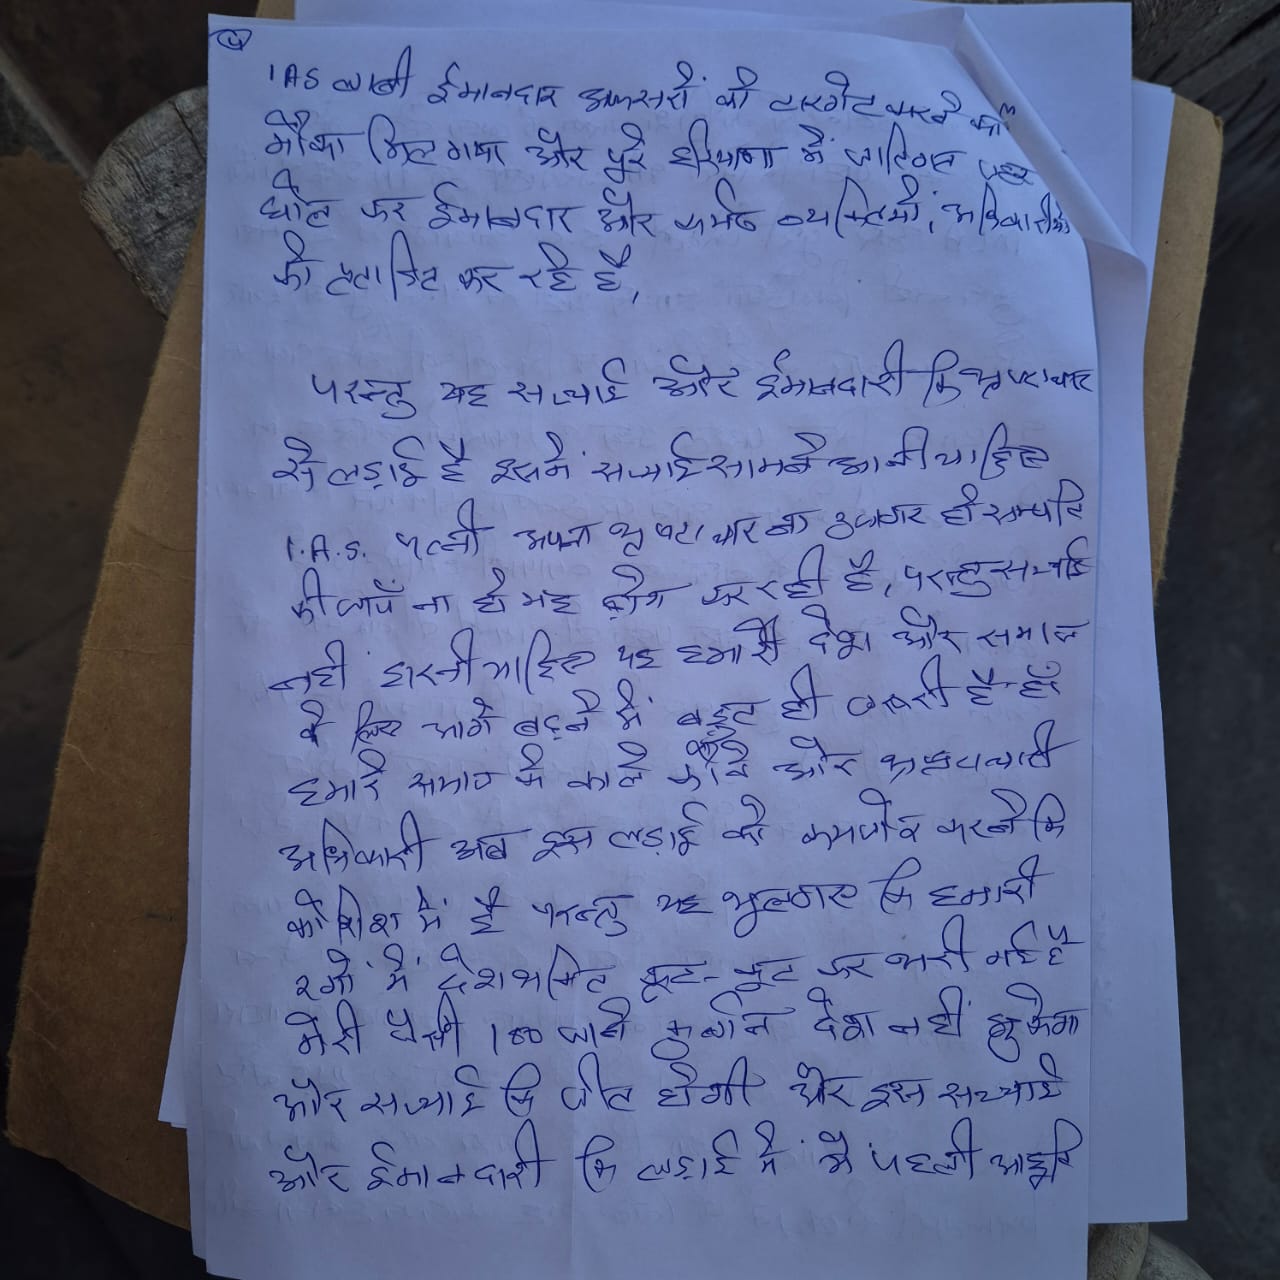 IAS लाबी ईमानदार अफसरों को टारगेट करने का
मौका मिल गया और पुरे हरियाणा में जातिगत जहर
घोल कर ईमानदार और कर्मठ व्यक्तियों, अधिकारीयों
को प्रताडित कर रहे है,
परन्तु यह सच्चाई और ईमानदारी कि भ्रष्टाचार
से लड़ाई है इसमें सच्चाई सामने आनी चाहिए
I.A.S. पत्नी अपना भ्रष्टाचार ना उजागर हो सम्पति
की जाचँ ना हो यह ढ़ोंग कर रही है, परन्तु सच्चाई
नही हारनी चाहिए यह हमारे देश और समाज
के लिए आगे बढ़ने में बहुत ही जरूरी है
हमारे समाज के काले और भ्रष्टाचारी
अधिकारी अब इस लड़ाई को कमजोर करने कि
कोशिश में है परन्तु यह भुलगए कि हमारी
रगों में देशभक्ति कूट-कूट कर भरी गई है
मेरी जैसी 100 जाने कुर्बान देश नहीं झुकेगा
और सच्चाई कि जीत होगी और इस सच्चाई
और ईमानदारी कि लड़ाई में मैं पहली आहुति